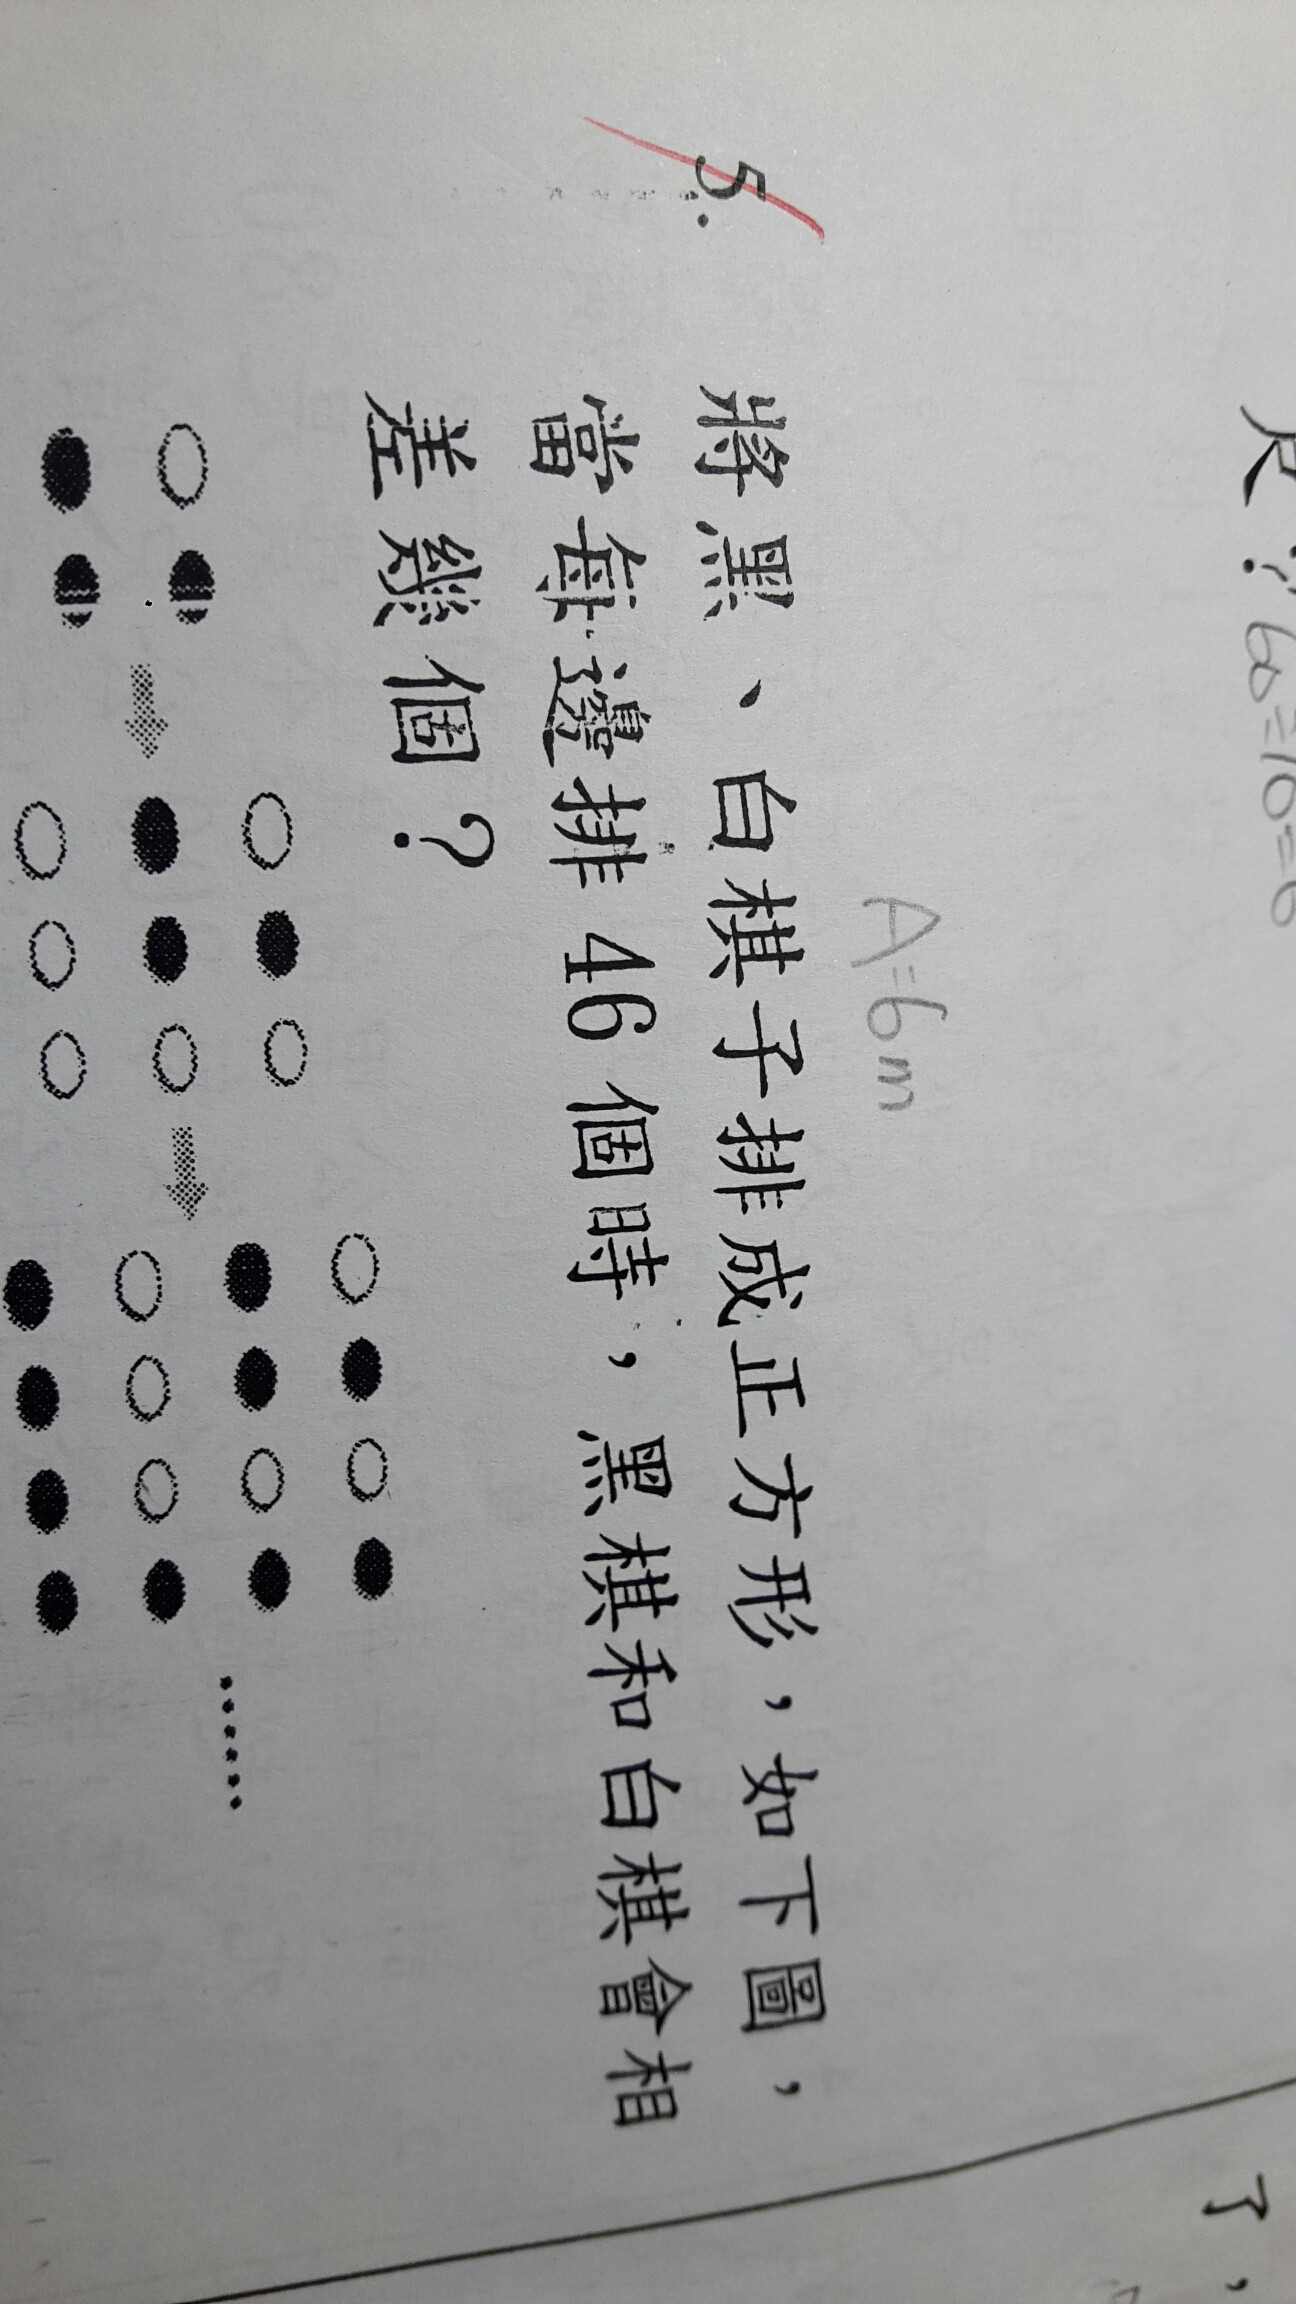 尺？ 6=16=6
A=6m
5. 將黑、白棋子排成正方形，如下圖，
當每邊排 46 個時，黑棋和白棋會相
差幾個？
……
了，